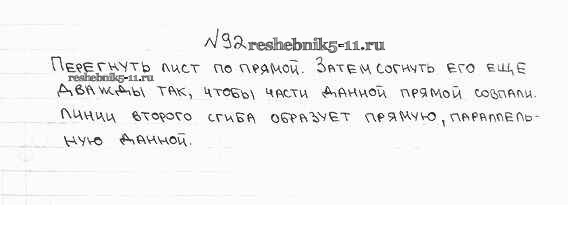 №92 reshebnik5-11.ru
Перегнуть лист по прямой. Затем согнуть его еще
reshebnik5-11.ru
дважды так, чтобы части данной прямой совпали.
Линии второго сгиба образует прямую, параллель-
ную данной.